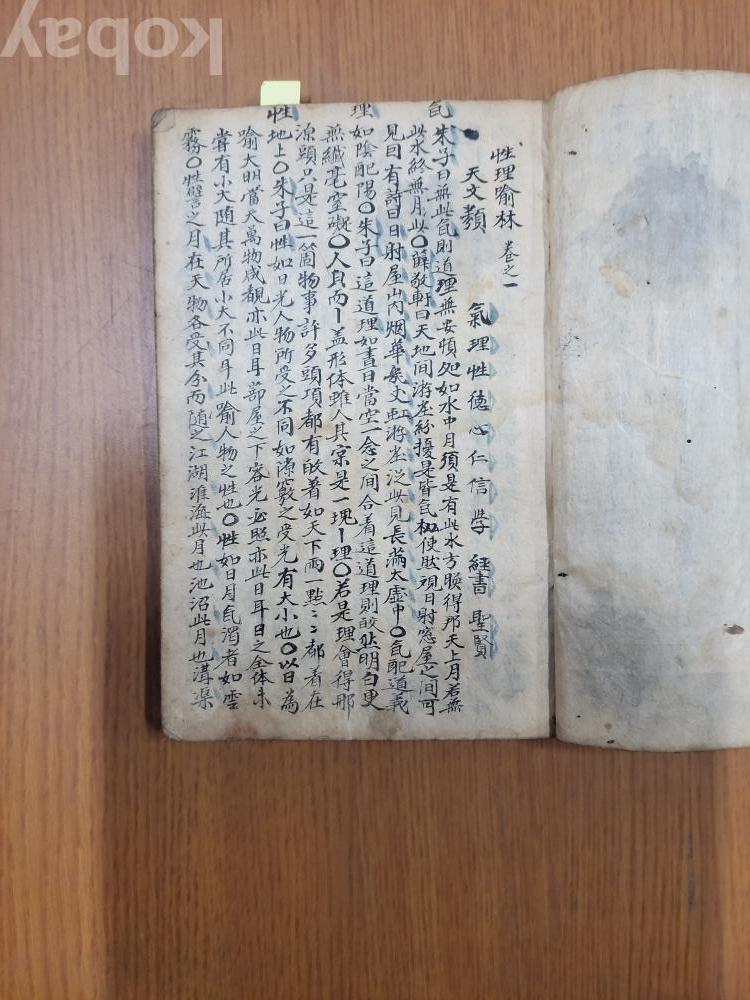 kobay
性理喻林 卷之一
天文類 氣理性德心仁信學 經書 聖賢
气 朱子曰無此气則道理無安頓処如水中月須是有此水方映得那天上月若無
此水終無月此〇薛敬軒曰天地間游塵紛擾是皆气机使然視日射窓屋之間可
見因有詩曰日射屋山內烟華矣丈虹游塵従此見長滿太虛中〇气配道義
理 如陰配陽〇朱子曰這道理如晝日當空一念之間合着這道理則皎然明白更
無纖毫窒礙〇人身而一盖形体雖人其宲是一塊一理〇若是理會得那
源頭只是這一箇物事許多頭項都有皈着如天下雨一點〻都着在
性 地上〇朱子曰性如日光人物所受之不同如隙竅之受光有大小也〇以日為
喻大明當天萬物咸覩亦此日耳蔀屋之下容光必照亦此日耳日之全体未
甞有小大随其所居小大不同耳此喻人物之性也〇性如日月气濁者如雲
霧〇性譬之月在天物各受其分而随之江湖淮海此月也池沼此月也溝渠